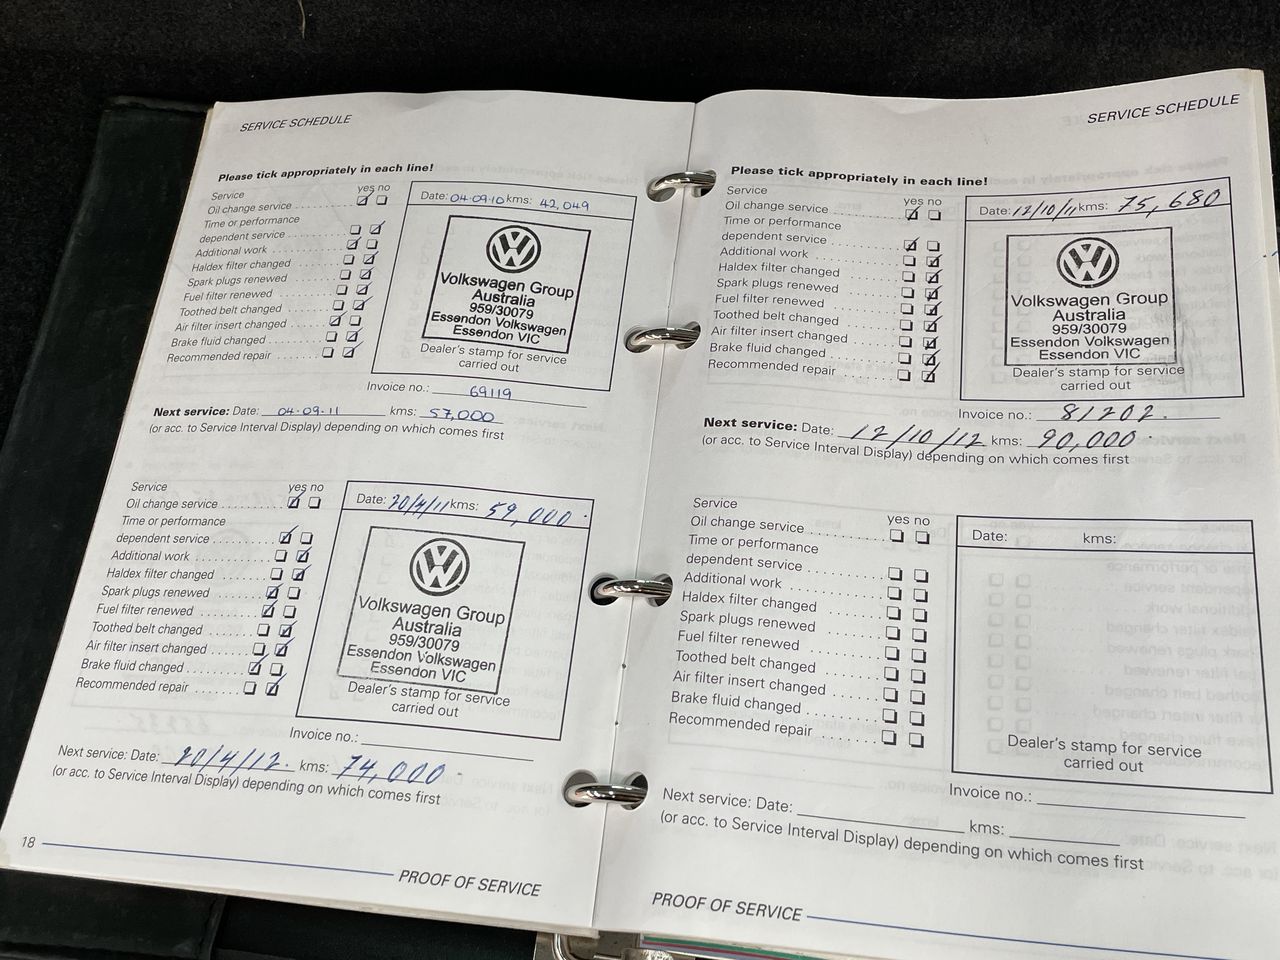 SERVICE SCHEDULE
Please tick appropriately in each line!
Service
yes no
Oil change service
Time or performance
dependent service
Additional work
Haldex filter changed
Spark plugs renewed
Fuel filter renewed
Toothed belt changed
Air filter insert changed
Brake fluid changed
Recommended repair
Date: 04·09·10 kms: 42,049
Volkswagen Group
Australia
959/30079
Essendon Volkswagen
Essendon VIC
Dealer's stamp for service
carried out
Invoice no.: 69119
Next service: Date: 04·09·11 kms: 57,000
(or acc. to Service Interval Display) depending on which comes first
Service
yes no
Oil change service
Time or performance
dependent service
Additional work
Haldex filter changed
Spark plugs renewed
Fuel filter renewed
Toothed belt changed
Air filter insert changed
Brake fluid changed
Recommended repair
Date: 20/4/11 kms: 59,000
Volkswagen Group
Australia
959/30079
Essendon Volkswagen
Essendon VIC
Dealer's stamp for service
carried out
Invoice no.:
Next service: Date: 20/4/12. kms: 74,000
(or acc. to Service Interval Display) depending on which comes first
18
PROOF OF SERVICE
SERVICE SCHEDULE
Please tick appropriately in each line!
Service
yes no
Oil change service
Time or performance
dependent service
Additional work
Haldex filter changed
Spark plugs renewed
Fuel filter renewed
Toothed belt changed
Air filter insert changed
Brake fluid changed
Recommended repair
Date: 12/10/11 kms: 75,680
Volkswagen Group
Australia
959/30079
Essendon Volkswagen
Essendon VIC
Dealer's stamp for service
carried out
Invoice no.: 81202.
Next service: Date: 12/10/12 kms: 90,000
(or acc. to Service Interval Display) depending on which comes first
Service
yes no
Oil change service
Time or performance
dependent service
Additional work
Haldex filter changed
Spark plugs renewed
Fuel filter renewed
Toothed belt changed
Air filter insert changed
Brake fluid changed
Recommended repair
Date: kms:
Dealer's stamp for service
carried out
Invoice no.:
Next service: Date: kms:
(or acc. to Service Interval Display) depending on which comes first
PROOF OF SERVICE